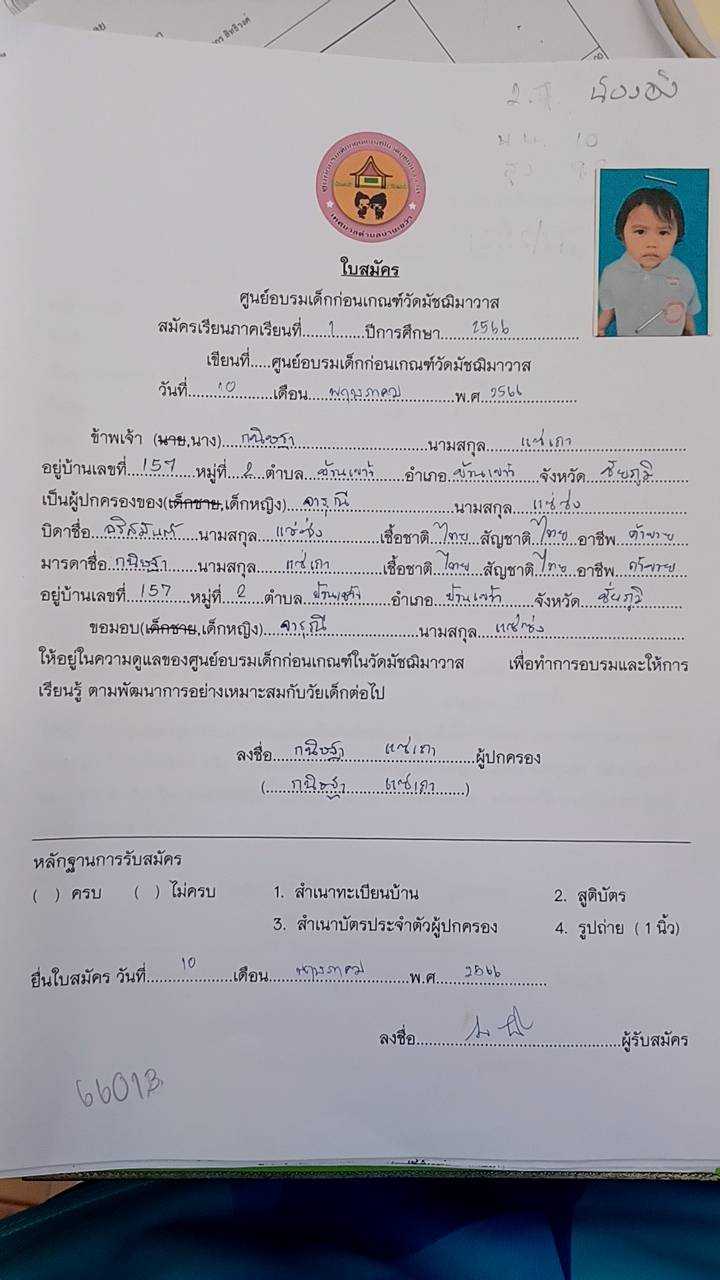 2.
น้องอิง
10
ใบสมัคร
ศูนย์อบรมเด็กก่อนเกณฑ์วัดมัชฌิมาวาส
สมัครเรียนภาคเรียนที่.....1.....ปีการศึกษา.....2566.....
เขียนที่.....ศูนย์อบรมเด็กก่อนเกณฑ์วัดมัชฌิมาวาส
วันที่.....10.....เดือน.....พฤษภาคม.....พ.ศ.2566.....
ข้าพเจ้า (นาย,นาง).....กนิษฐา.....นามสกุล.....แซ่เถา.....
อยู่บ้านเลขที่.....157.....หมู่ที่..2..ตำบล..บ้านเขว้า.....อำเภอ..บ้านเขว้า.....จังหวัด..ชัยภูมิ.....
เป็นผู้ปกครองของ(เด็กชาย,เด็กหญิง).....จารุณี.....นามสกุล.....แซ่ซ่ง.....
บิดาชื่อ.....นามสกุล.....แซ่ซ่ง.....เชื้อชาติ..ไทย..สัญชาติ..ไทย..อาชีพ..ค้าขาย.....
มารดาชื่อ..กนิษฐา.....นามสกุล.....แซ่เถา.....เชื้อชาติ..ไทย..สัญชาติ..ไทย..อาชีพ..ค้าขาย.....
อยู่บ้านเลขที่..157.....หมู่ที่..2.....ตำบล..บ้านเขว้า.....อำเภอ..บ้านเขว้า.....จังหวัด..ชัยภูมิ.....
ขอมอบ(เด็กชาย,เด็กหญิง).....จารุณี.....นามสกุล.....แซ่ซ่ง.....
ให้อยู่ในความดูแลของศูนย์อบรมเด็กก่อนเกณฑ์ในวัดมัชฌิมาวาส เพื่อทำการอบรมและให้การ
เรียนรู้ ตามพัฒนาการอย่างเหมาะสมกับวัยเด็กต่อไป
ลงชื่อ.....กนิษฐา แซ่เถา.....ผู้ปกครอง
(.....กนิษฐา แซ่เถา.....)
หลักฐานการรับสมัคร
( ) ครบ ( ) ไม่ครบ 1. สำเนาทะเบียนบ้าน 2. สูติบัตร
3. สำเนาบัตรประจำตัวผู้ปกครอง 4. รูปถ่าย ( 1 นิ้ว)
ยื่นใบสมัคร วันที่.....10.....เดือน.....พฤษภาคม.....พ.ศ.....2566.....
ลงชื่อ.....ผู้รับสมัคร
66013